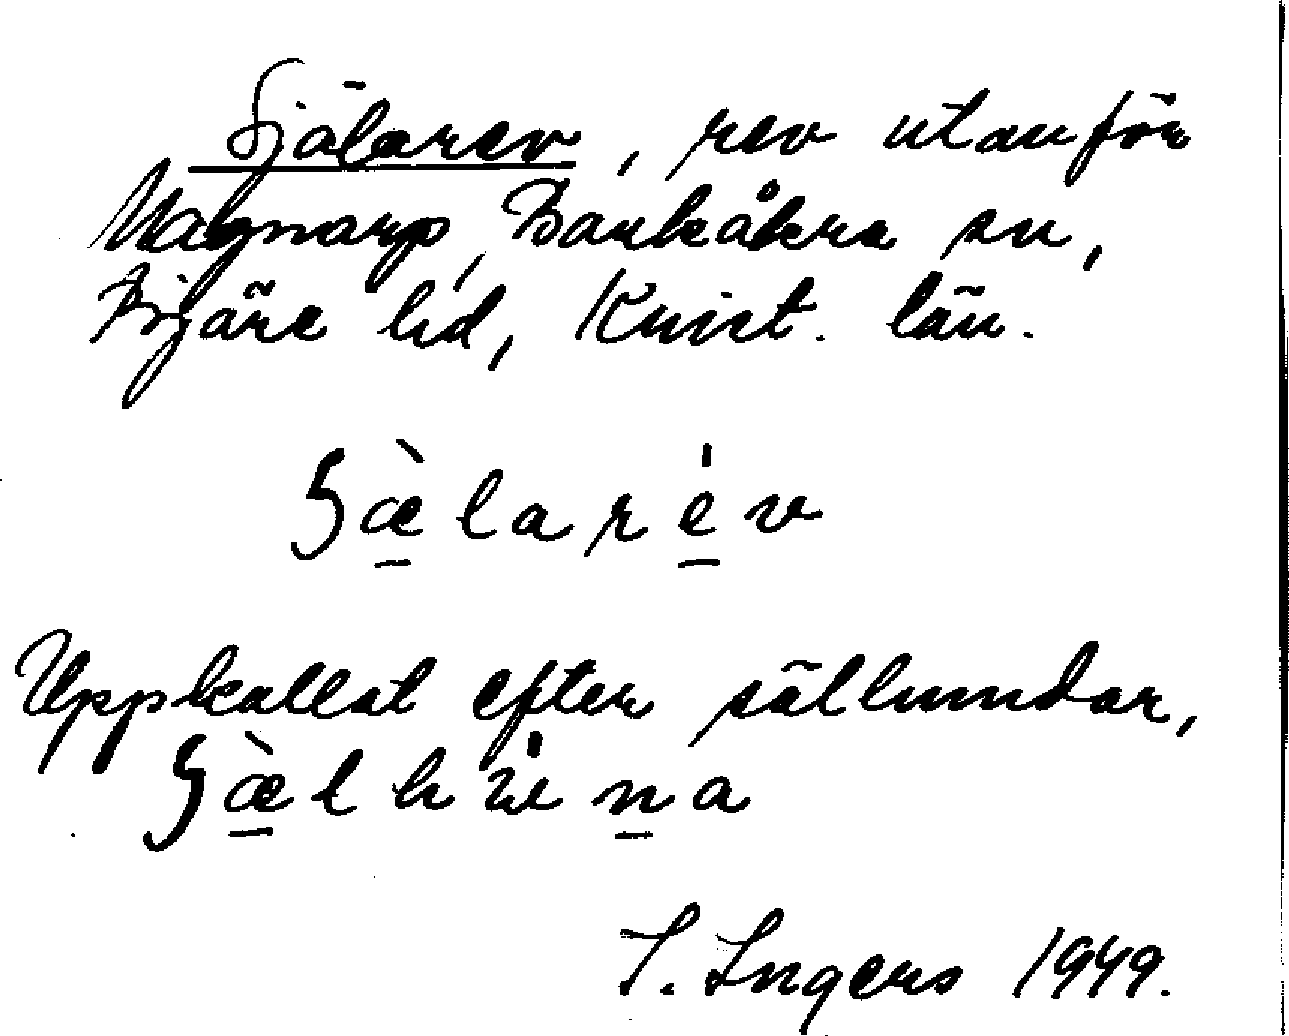 Själarev, rev utanför
Magnarp, Barkåkra sn,
Bjäre hd, Krist. län.
ʒæ̀larév
Uppkallat efter sälhundar,
ʒæ̀lhúna
I. Ingers 1949.